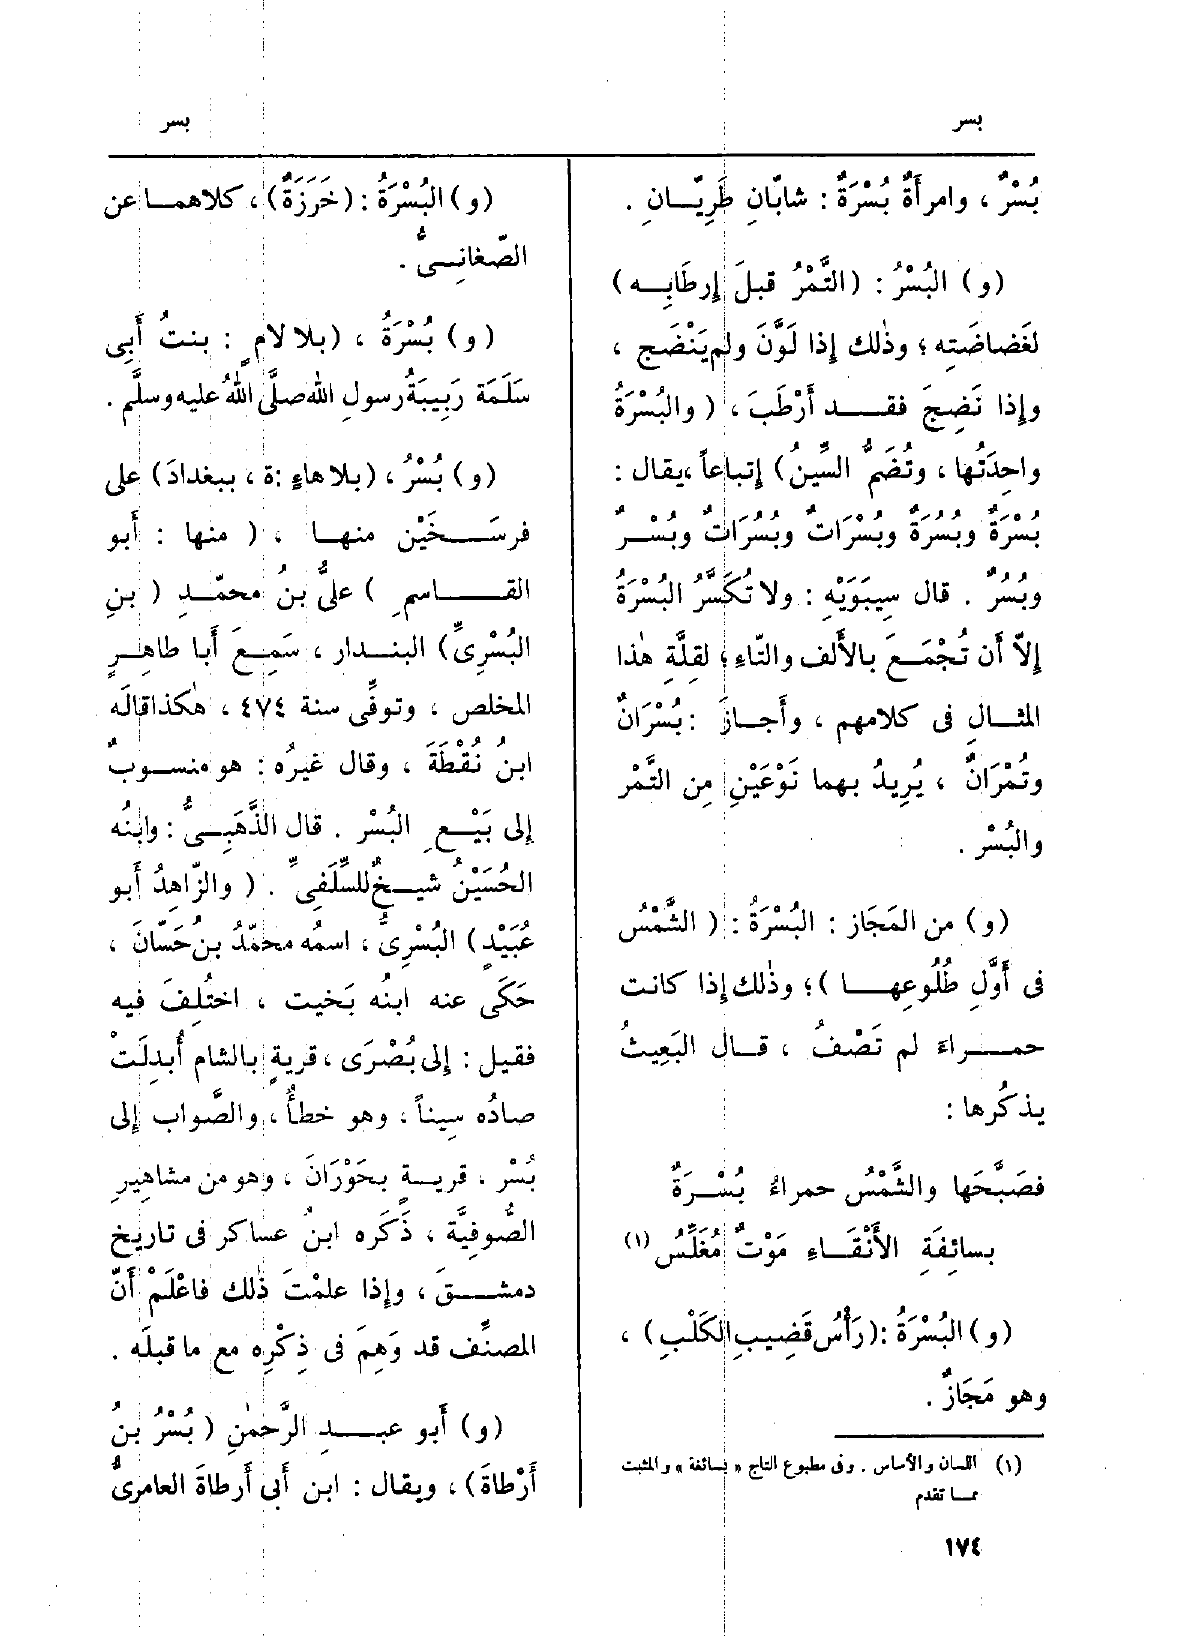 بسر
بسر
بُسْرٌ ، وامرأَةٌ بُسْرَةٌ : شابّانِ طَرِيّــانِ .
(و) البُسْرُ : (التَّمْرُ قبلَ إِرطَابِـه)
لغَضاضَتِه ؛ وذٰلك إِذا لَوَّنَ ولم يَنْضَج ،
وإِذا نَضِجَ فقــد أَرْطَبَ ، ( والبُسْرَةُ
واحِدَتُها ، وتُضَمُّ السِّينُ) إِتباعاً ، يقال :
بُسْرَةٌ وبُسُرَةٌ وبُسْرَاتٌ وبُسُرَاتٌ وبُسْــرٌ
وبُسُرٌ . قال سِيبَوَيْهِ : ولا تُكَسَّرُ البُسْرَةُ
إِلاّ أَن تُجْمَــعَ بالأَلف والتّاءِ ؛ لقِلَّةِ هٰذا
المثــالِ فى كلامهم ، وأَجازَ : بُسْرَانٌ
وتُمْرَانٌ ، يُرِيدُ بهما نَوْعَيْنِ مِن التَّمْر
والبُسْر .
(و) من المَجَاز : البُسْرَةُ : ( الشَّمْسُ
فى أَوَّلِ طُلُوعِهــا )؛ وذٰلك إِذا كانت
حمــراءَ لم تَصْفُ ، قــال البَعِيثُ
يذكُرها :
فصَبَّحَها والشَّمْسُ حمراءُ بُسْــرَةٌ
بسائِفَةِ الأَنْقَــاءِ مَوْتٌ مُغَلِّسُ (١)
(و) البُسْرَةُ : (رَأْسُ قَضِيبِ الكَلْبِ) ،
وهو مَجَازٌ .
(١) اللسان والأساس . وفى مطبوع التاج « بسائفة » والمثبت
مما تقدم
(و) البُسْرَةُ : (خَرَزَةٌ) ، كلاهمــا عن
الصّغانِــىُّ .
(و) بُسْرَةُ ، (بلا لامٍ : بنتُ أَبِى
سَلَمَة رَبِيبَةُ رسولِ الله صلَّى اللهُ عليه وسلَّم .
(و) بُسْرُ ، (بلا هاءٍ :ة ، ببغدادَ) على
فرسَــخَيْن منهــا ، ( منها : أَبو
القــاسمِ ) علىُّ بنُ محمّــدِ ( بنِ
البُسْرِىِّ) البنــدار ، سَمِــعَ أَبا طاهِــرٍ
المخلص ، وتوفِّى سنة ٤٧٤ ، هٰكذا قالَه
ابنُ نُقْطَةَ ، وقال غيرُه : هو منســوبٌ
إِلى بَيْــعِ البُسْر . قال الذَّهَبِــىُّ : وابنُه
الحُسَيْنُ شيــخٌ للسِّلَفِىِّ . ( والزّاهِدُ أَبو
عُبَيْدٍ) البُسْرِىُّ ، اسمُه محمّدُ بن حَسّانَ ،
حَكَى عنه ابنُه بَخيت ، اختُلِفَ فيه
فقيل : إِلى بُصْرَى ، قريةٍ بالشام أُبدِلَتْ
صادُه سِيناً ، وهو خطأٌ ، والصَّواب إِلى
بُسْر ، قريــةٍ بحَوْرَانَ ، وهو من مشاهِيرِ
الصُّوفِيَّة ، ذَكَره ابنُ عساكر فى تاريخِ
دمشــقَ ، وإِذا علمْتَ ذٰلك فاعْلَمْ أَنّ
المصنِّف قد وَهِمَ فى ذِكْرِه مع ما قبلَه .
(و) أَبو عبــدِ الرَّحمٰنِ ( بُسْرُ بنُ
أَرْطاةَ) ، ويقال : ابن أَبى أَرطاةَ العامرىُّ
١٧٤